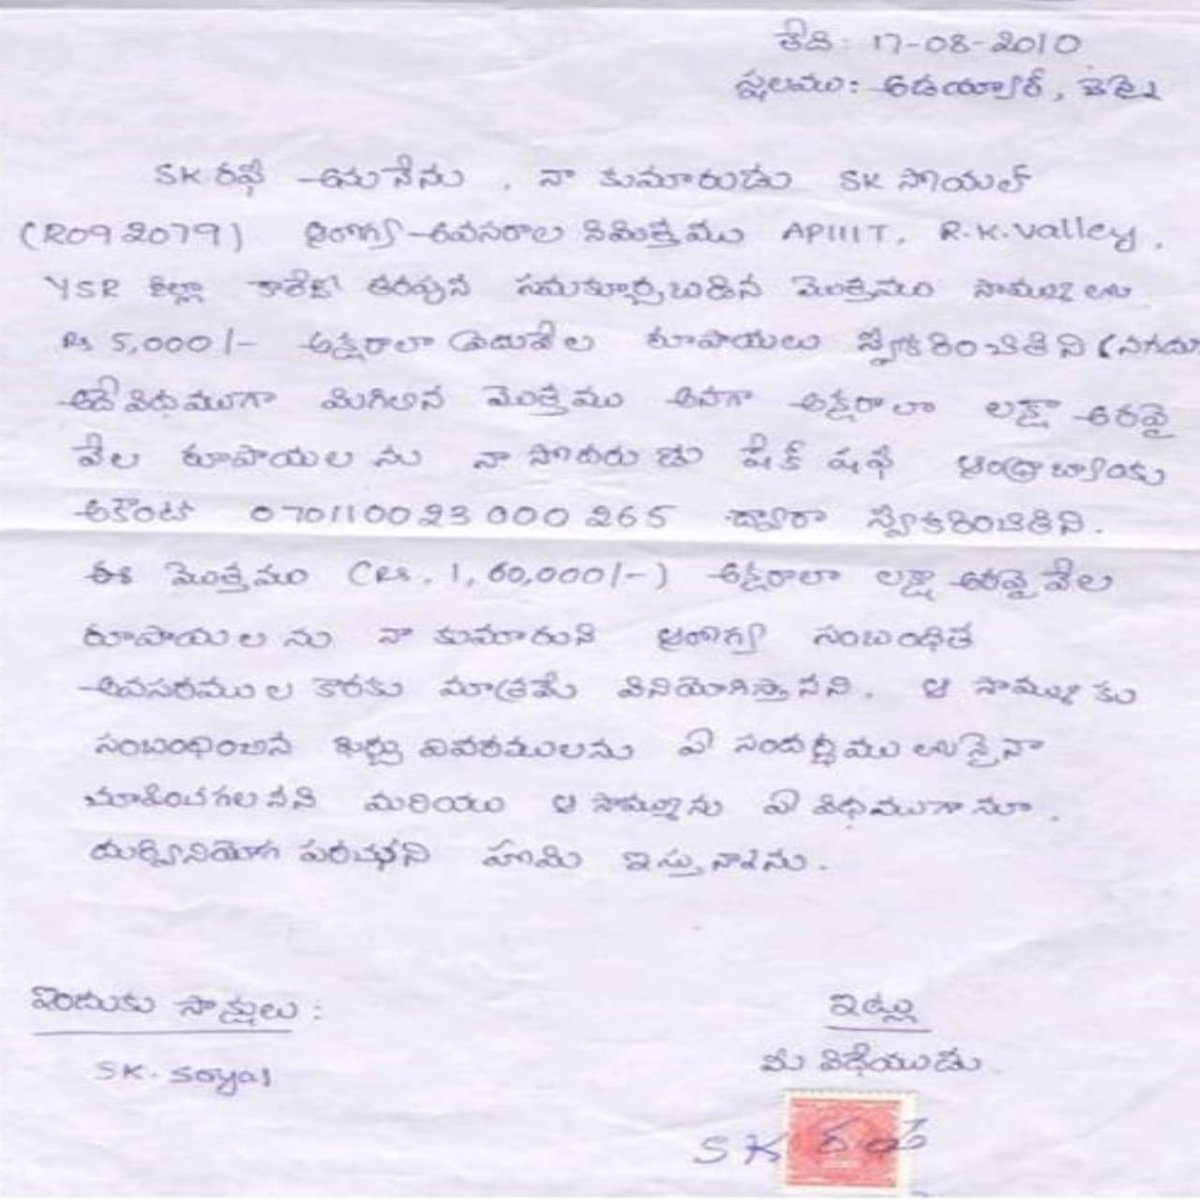 తేది: 17-08-2010
స్థలము: అడయ్యార్, చెన్నై
SK రఫీ అను నేను, నా కుమారుడు SK సోయల్
(R092079) ఆరోగ్య అవసరాల నిమిత్తము APIIIT, R.K.Valley,
YSR జిల్లా కాలేజీ తరపున సమకూర్చబడిన మొత్తము సొమ్ములు
Rs 5,000/- అక్షరాలా ఐదువేల రూపాయలు స్వీకరించితిని (నగదు
అదేవిధముగా మిగిలిన మొత్తము అనగా అక్షరాలా లక్షా అరవై
వేల రూపాయలను నా సోదరుడు షేక్ షఫీ ఆంధ్రాబ్యాంకు
అకౌంట్ 070110023000265 ద్వారా స్వీకరించితిని.
ఈ మొత్తము (Rs. 1,60,000/-) అక్షరాలా లక్షా అరవై వేల
రూపాయలను నా కుమారుని ఆరోగ్య సంబంధిత
అవసరముల కొరకు మాత్రమే వినియోగిస్తానని. ఆ సొమ్ముకు
సంబంధించిన ఖర్చు వివరములను ఏ సందర్భములోనైనా
చూపించగలనని మరియు ఆ సొమ్మును ఏ విధముగానూ
దుర్వినియోగ పరచనని హామి ఇస్తున్నాను.
ఇందుకు సాక్షులు:
SK. Soyal
ఇట్లు
మీ విధేయుడు
SK రఫీ